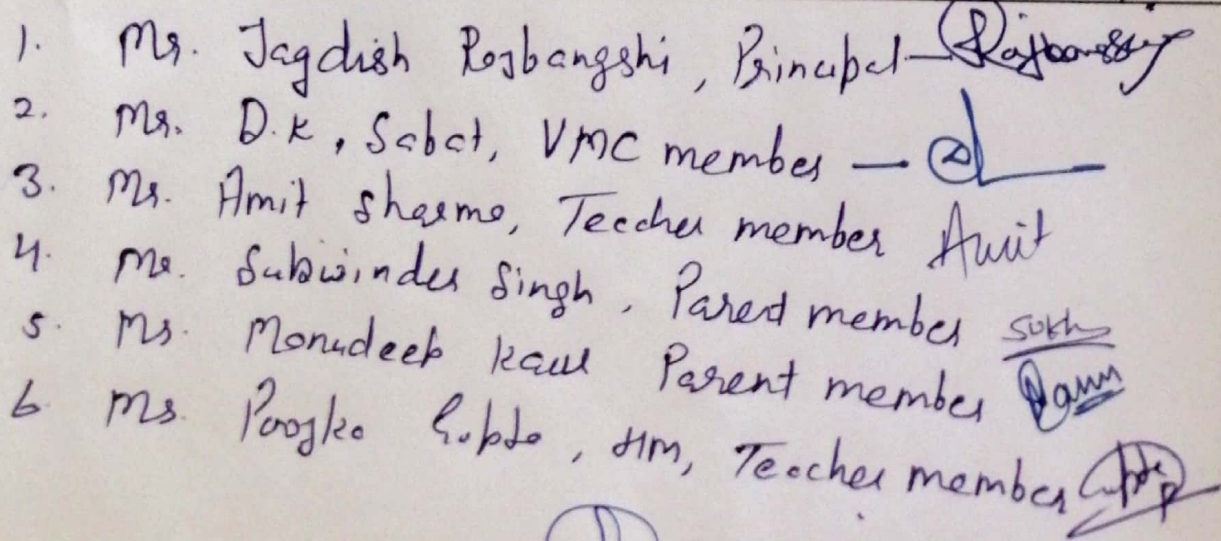 1. Mr. Jagdish Rajbangshi, Principal - Rajbangshi
2. Mr. D.K, Sabat, VMC member -
3. Mr. Amit Sharma, Teacher member Amit
4. Mr. Sukwinder Singh, Parent member Sukh
5. Ms. Monudeep Kaur Parent member
6 Ms. Gupta, HM, Teacher member